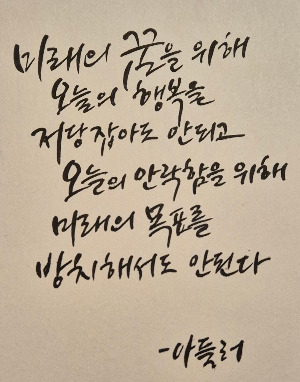 미래의 꿈을 위해
오늘의 행복을
저당 잡아도 안되고
오늘의 안락함을 위해
미래의 목표를
방치해서도 안된다
-아들러